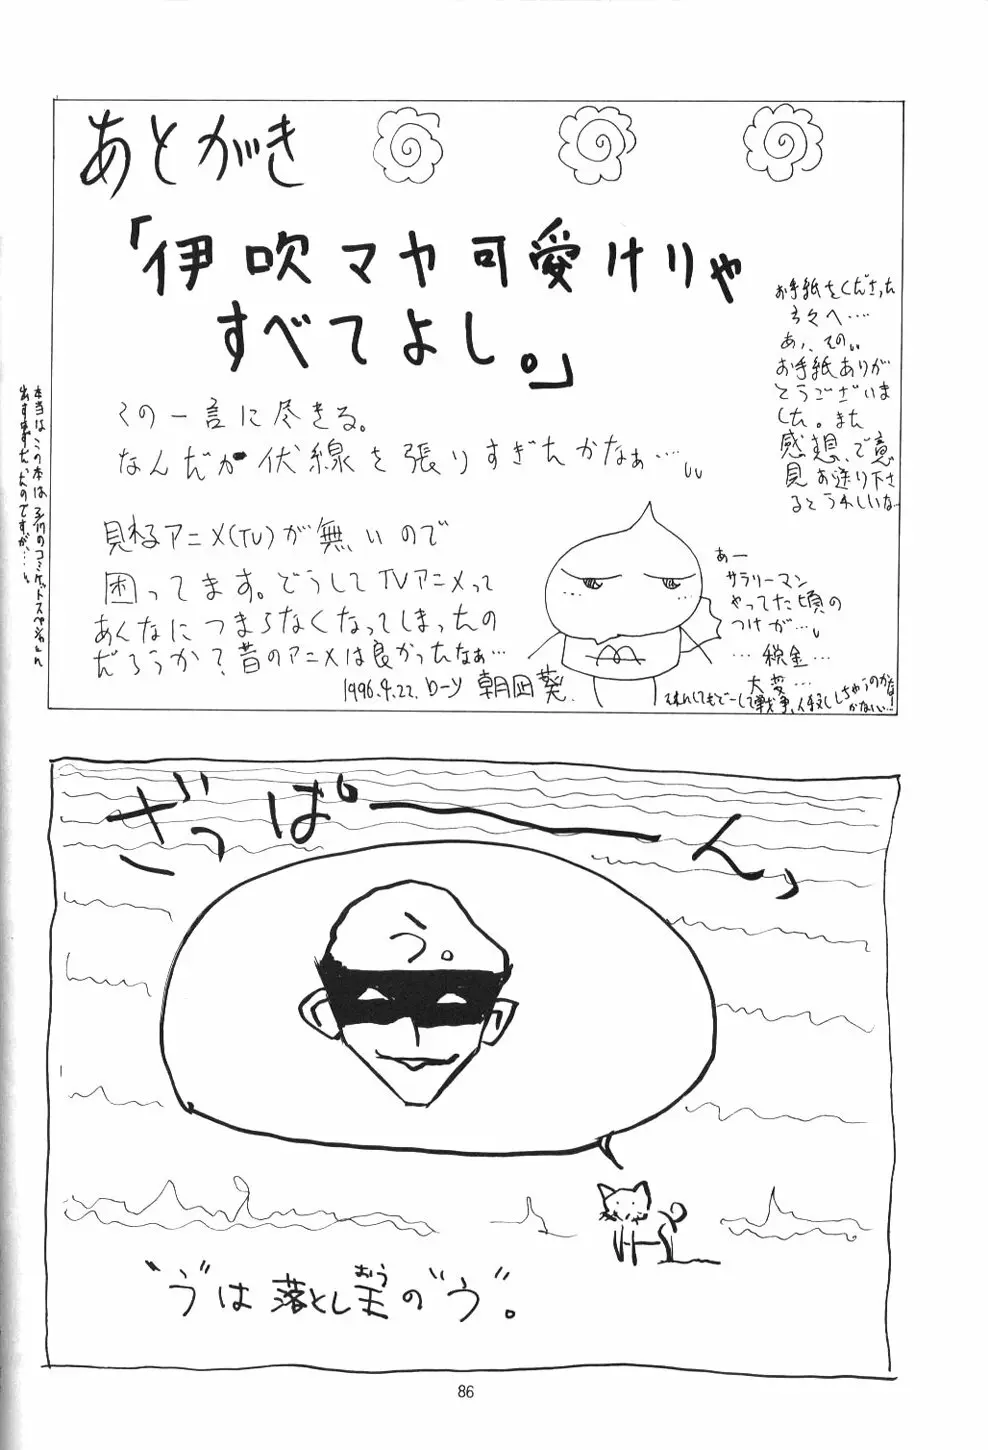 あとがき
「伊吹マヤ可愛けりゃ
すべてよし。」
この一言に尽きる。
なんだか伏線を張りすぎたかなぁ…
見れるアニメ(TV)が無いので
困ってます。どうしてTVアニメって
あんなにつまらなくなってしまったの
だろうか?昔のアニメは良かったなぁ…
1996.4.22. ローソ 朝凪葵.
お手紙をくださった
方々へ….
あ、その、、
お手紙ありが
とうございま
した。また
感想、ご意
見お送り下さ
るとうれしいな
あー
サラリーマン
やってた頃の
つけが…
… 税金 …
大変…
本当はこの本は3/17のコミケットスペシャルに
出すはずだったのですが…
ざっぱーーん」
う。
“う”は落とし王の“う”。
おう
86